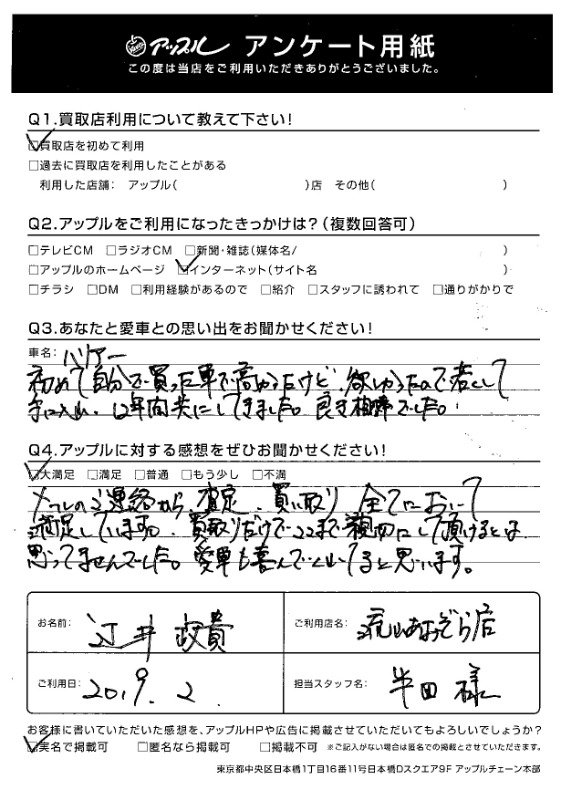 アップル アンケート用紙
この度は当店をご利用いただきありがとうございました。
Q1.買取店利用について教えて下さい!
買取店を初めて利用
□過去に買取店を利用したことがある
利用した店舗: アップル( )店 その他( )
Q2.アップルをご利用になったきっかけは?(複数回答可)
□テレビCM □ラジオCM □新聞・雑誌(媒体名/ )
□アップルのホームページ ☑インターネット(サイト名 )
□チラシ □DM □利用経験があるので □紹介 □スタッフに誘われて □通りがかりで
Q3.あなたと愛車との思い出をお聞かせください!
車名: ハリアー
初めて自分で買った車で高かったけど、欲しかったので
手に入れ、12年間共にしてきました。良き相棒でした。
Q4.アップルに対する感想をぜひお聞かせください!
☑大満足 □満足 □普通 □もう少し □不満
連絡から査定、買い取り 全てにおいて
満足しています。買取りだけでここまで親切にして頂けるとは
思ってませんでした。愛車も喜んでくれてると思います。
お名前: 辻井 政貴
ご利用店名: 流山おおぞら店
ご利用日: 2019. 2.
担当スタッフ名: 半田 様
お客様に書いていただいた感想を、アップルHPや広告に掲載させていただいてもよろしいでしょうか?
☑実名で掲載可 □匿名なら掲載可 □掲載不可 ※ご記入がない場合は匿名での掲載とさせていただきます。
東京都中央区日本橋1丁目16番11号日本橋Dスクエア9F アップルチェーン本部